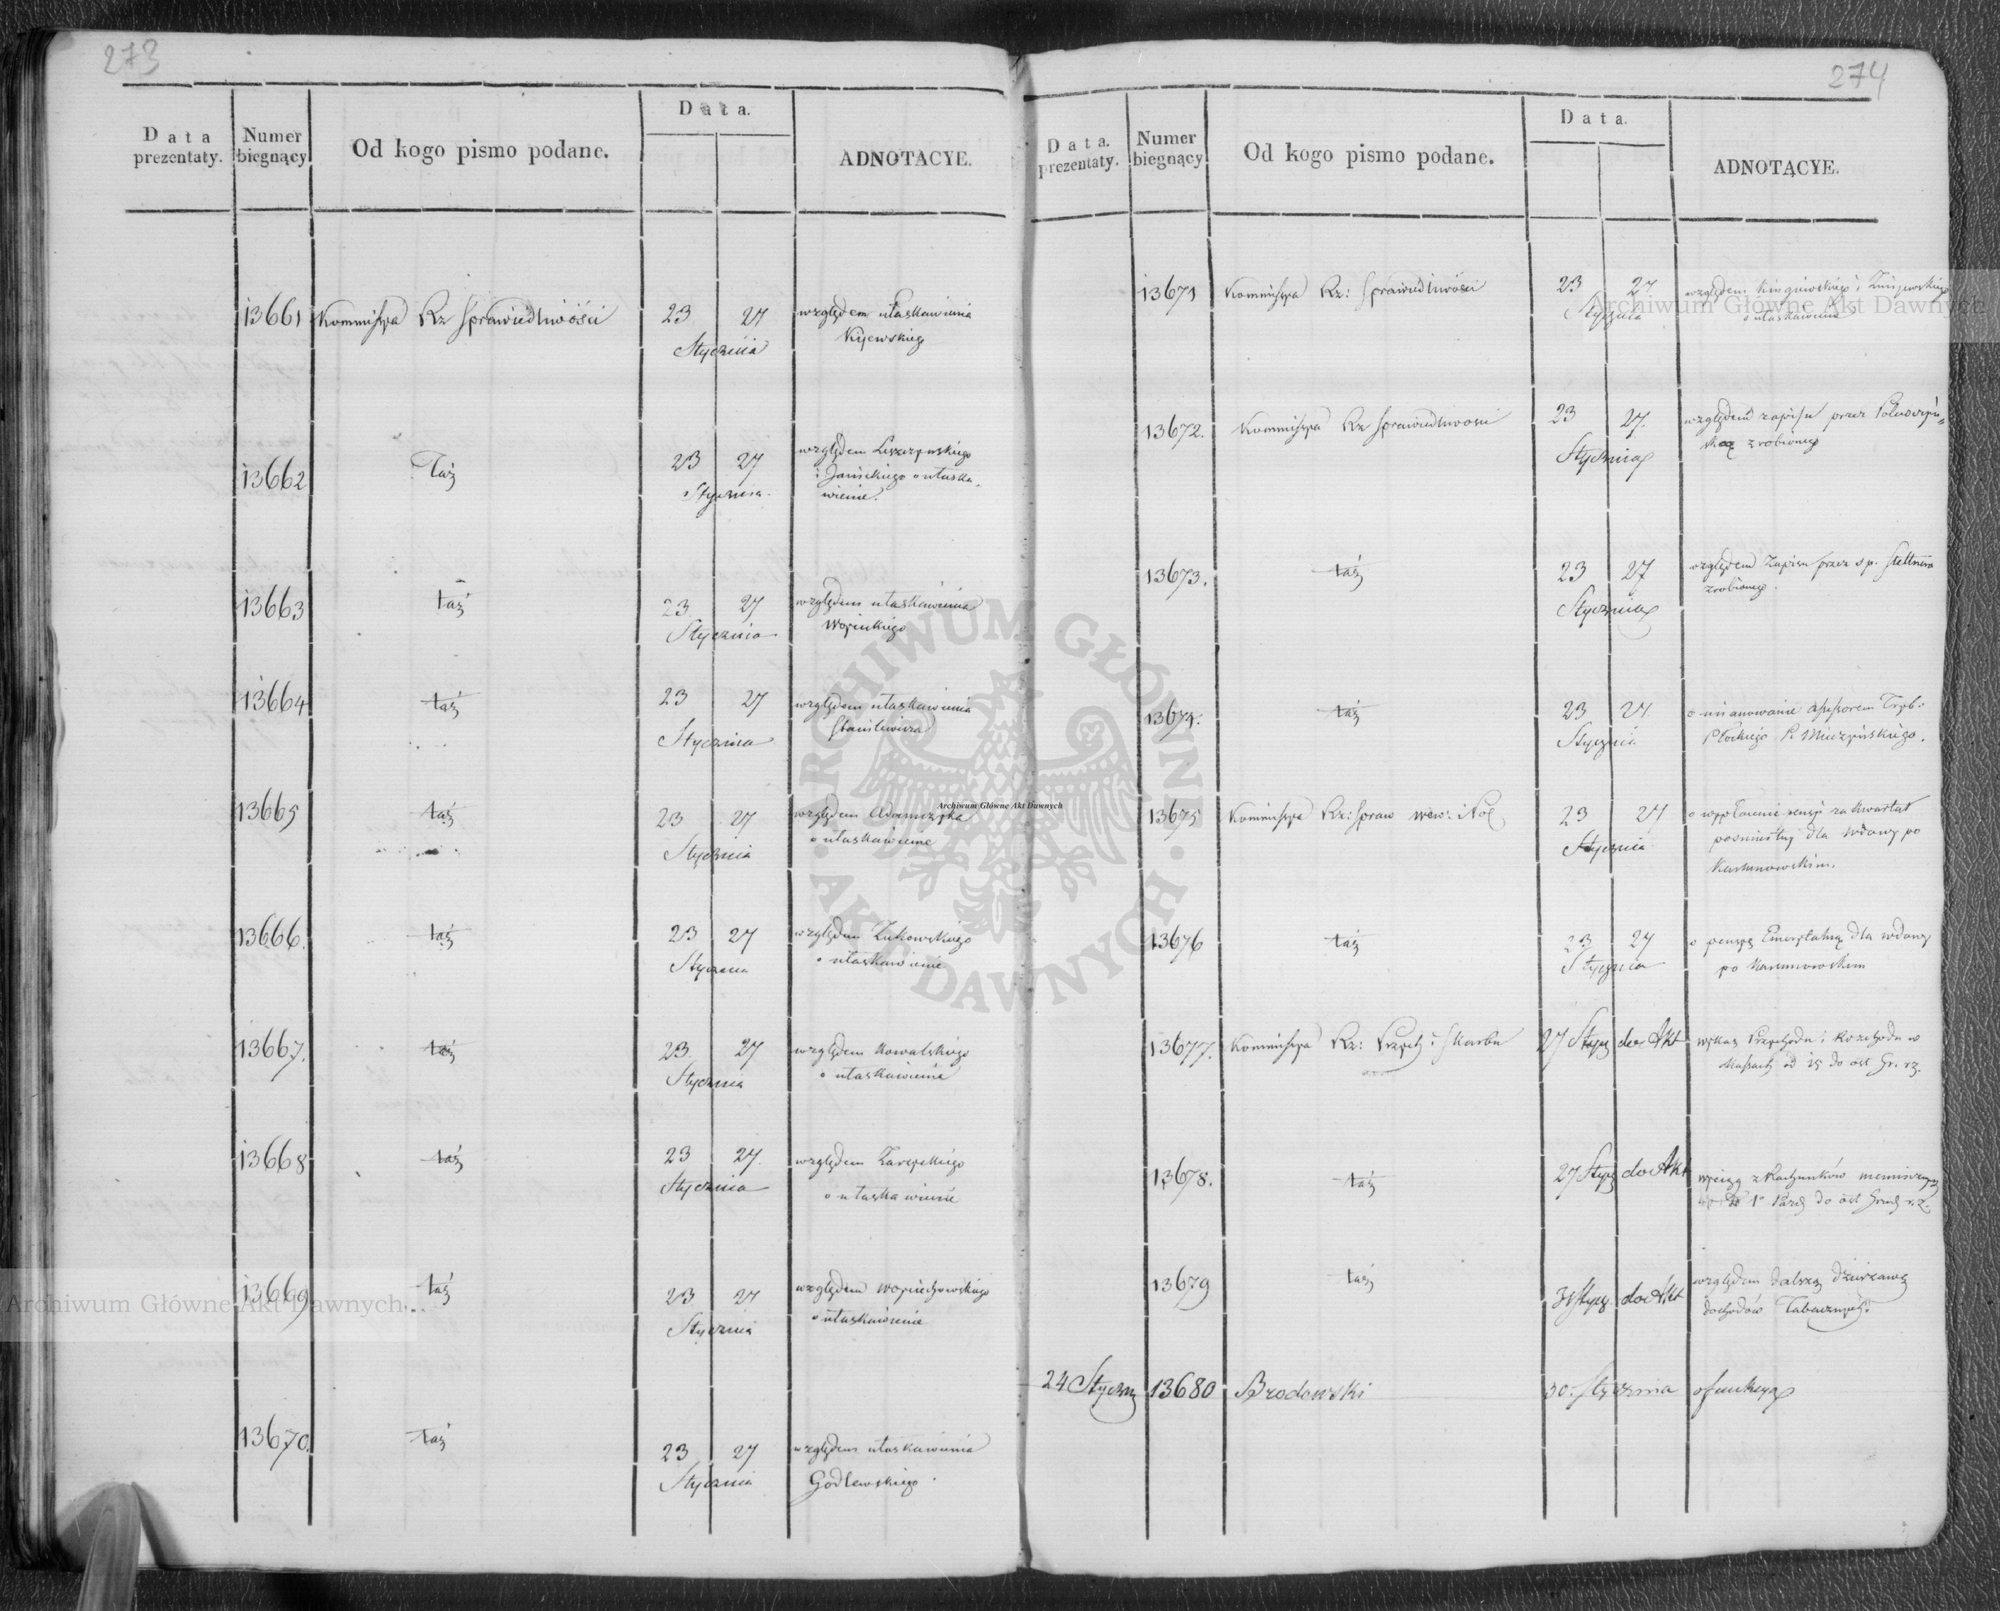 273
Data prezentaty.
Numer biegnący
Od kogo pismo podane.
Data.
ADNOTACYE.
13661 Kommissya Rz Sprawiedliwości 23 27 względem ułaskawienia
Stycznia Kijewskiego
13662 Taż 23 27 względem Leszczyńskiego
Stycznia i Janickiego o ułaska-
wienie.
13663 taż 23 27 względem ułaskawienia
Stycznia Woycickiego
13664 taż 23 27 względem ułaskawienia
Stycznia Stanilewicza
13665 taż 23 27 względem Adamczyka
Stycznia o ułaskawienie
13666. taż 23 27 względem Żukowskiego
Stycznia o ułaskawienie
13667. taż 23 27 względem Kowalskiego
Stycznia o ułaskawienie
13668 taż 23 27. względem Zarzyckiego
Stycznia o ułaskawienie
13669 taż 23 27 względem Woyciechowskiego
Stycznia o ułaskawienie
13670. taż 23 27 względem ułaskawienia
Stycznia Godlewskiego.
274
Data. prezentaty.
Numer biegnący
Od kogo pismo podane.
Data.
ADNOTACYE.
13671 Kommissya Rz: Sprawiedliwości 23 27 względem i
Stycznia o ułaskawienie
13672. Kommissya Rz Sprawiedliwości 23 27. względem zapisu przez
Stycznia zrobionego
13673. taż 23 27 względem Zapisu przez ś.p. Stellnera
Stycznia zrobionego.
13674. taż 23 27. o mianowanie assessorem Tryb:
Stycznia Płockiego P. Mieczyńskiego.
13675 Kommissya Rz: Spraw wew: i Pol 23 27 o wypłacenie pensyi za kwartał
Stycznia pośmiertny dla wdowy po
Karnowskim.
13676 taż 23 27 o pensyę Emerytalną dla wdowy
Stycznia po Karnowskim
13677. Kommissya Rz: Przych: i Skarbu 27 Stycz do Akt wykaz Przychodu i Rozchodu w
Massach od 15 do ost Gr. rz.
13678. taż 27 Stycz do Akt wyciąg z Rachunków
1° Paźdz do ost Grud r. z.
13679 taż 31 Stycz do Akt względem dalszej dzierżawy
dochodów Tabacznych.
24 Styczn 13680 Brodowski 30. Stycznia o funkcyą
Archiwum Główne Akt Dawnych
Archiwum Główne Akt Dawnych
Archiwum Główne Akt Dawnych
ARCHIWUM GŁÓWNE · AKT DAWNYCH ·